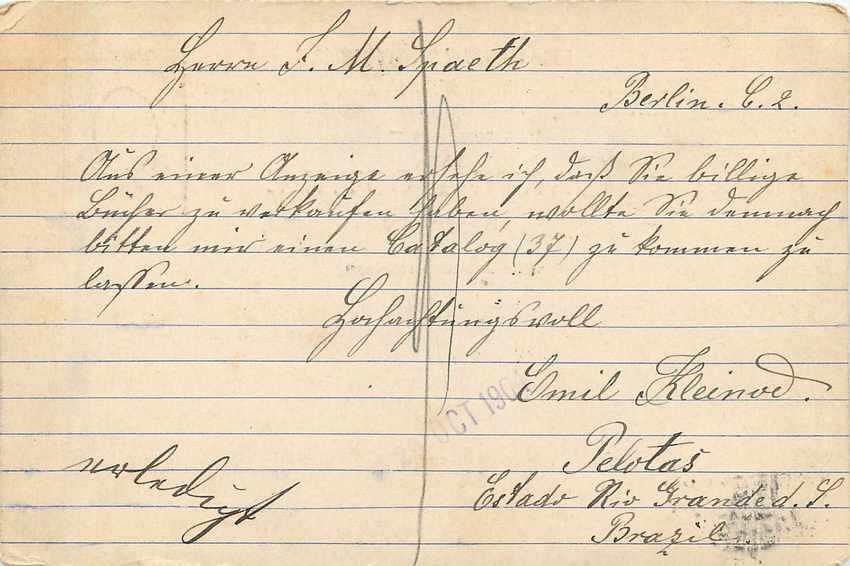 Herrn J. M. Spaeth
Berlin. C. 2.
Aus einer Anzeige ersehe ich, daß Sie billige
Bücher zu verkaufen haben, wollte Sie demnach
bitten mir einen Catalog (37) zu kommen zu
lassen.
Hochachtungsvoll
Emil Kleinod.
OCT 190
Pelotas
erledigt
Estado Rio Grande d. S.
Brazil.